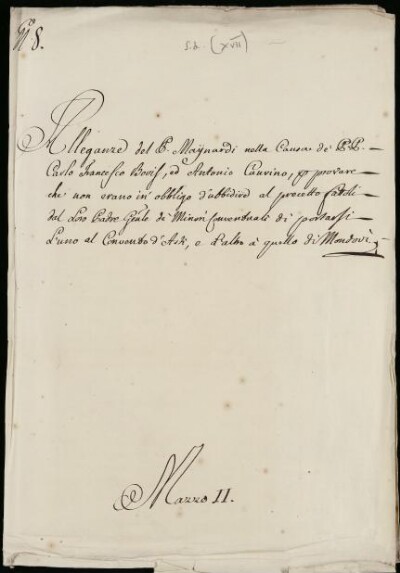 N.ro 8.
s.d. (XVII)
Alleganze del P. Maynardi nella Causa de' P.P.
Carlo Francesco Bovis, ed Antonio Cauvino, per provare
che non erano in obbligo d'ubbidire al precetto
del Loro Padre Gen.le di Minori Conventuali di portarsi
l'uno al Convento d'Asti, e l'altro à quello di Mondovì
Mazzo II.